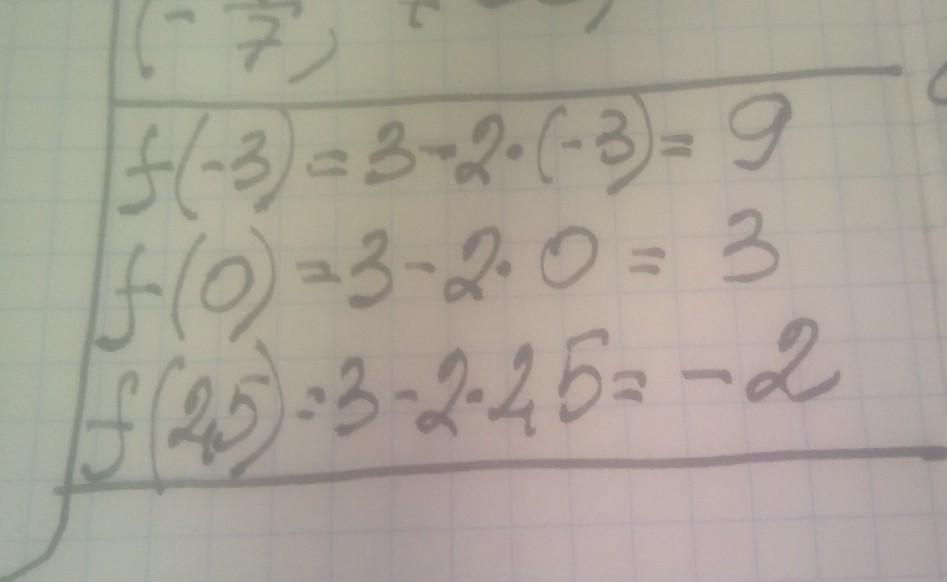 (-7/7, +
f(-3) = 3-2·(-3) = 9
f(0) = 3-2·0 = 3
f(2,5) = 3-2·2,5 = -2